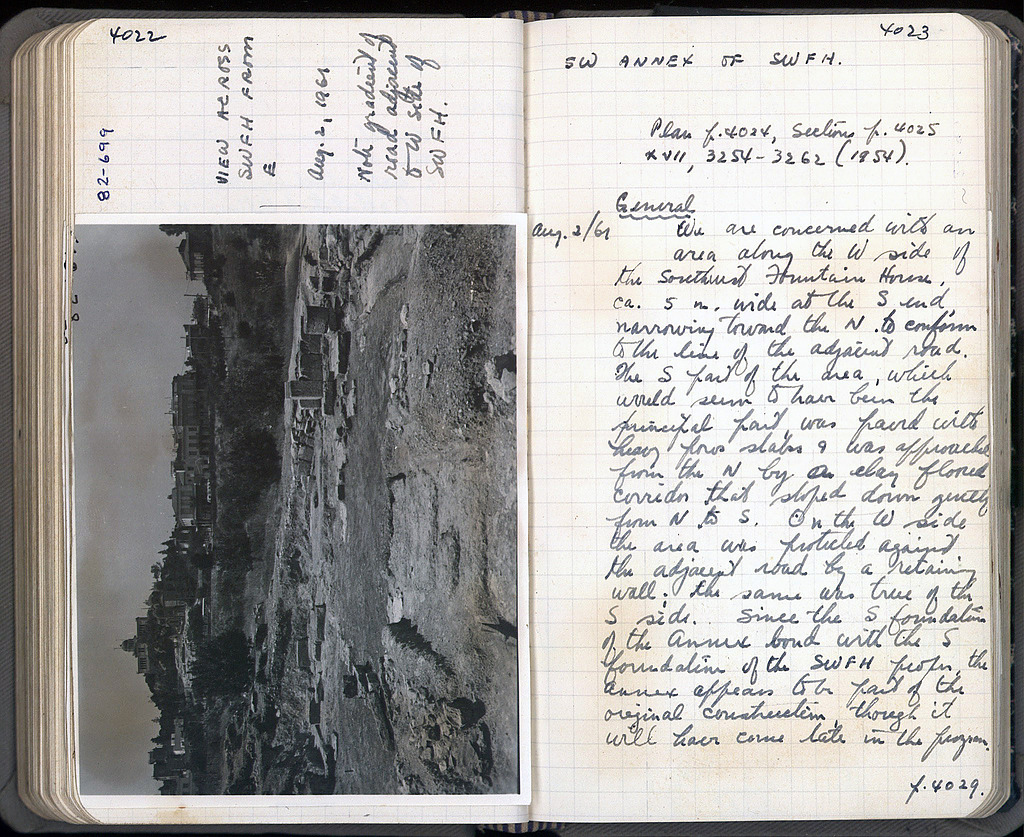 4022
82-699
VIEW ACROSS
SWFH FROM
E
Aug. 2, 1961
Note gradient of
road adjacent
to W side of
SWFH.
4023
SW ANNEX OF SWFH.
Plan p. 4024, Sections p. 4025
XVII, 3254-3262 (1954).
General
Aug. 2/61 We are concerned with an
area along the W side of
the Southwest Fountain House,
ca. 5 m. wide at the S end
narrowing toward the N to conform
to the line of the adjacent road.
The S part of the area, which
would seem to have been the
principal part, was paved with
heavy poros slabs & was approached
from the N by a clay floored
corridor that sloped down gently
from N to S. On the W side
the area was protected against
the adjacent road by a retaining
wall; the same was true of the
S side. Since the S foundation
of the Annex bond with the S
foundation of the SWFH proper, the
annex appears to be part of the
original construction, though it
will have come late in the program.
p. 4029.